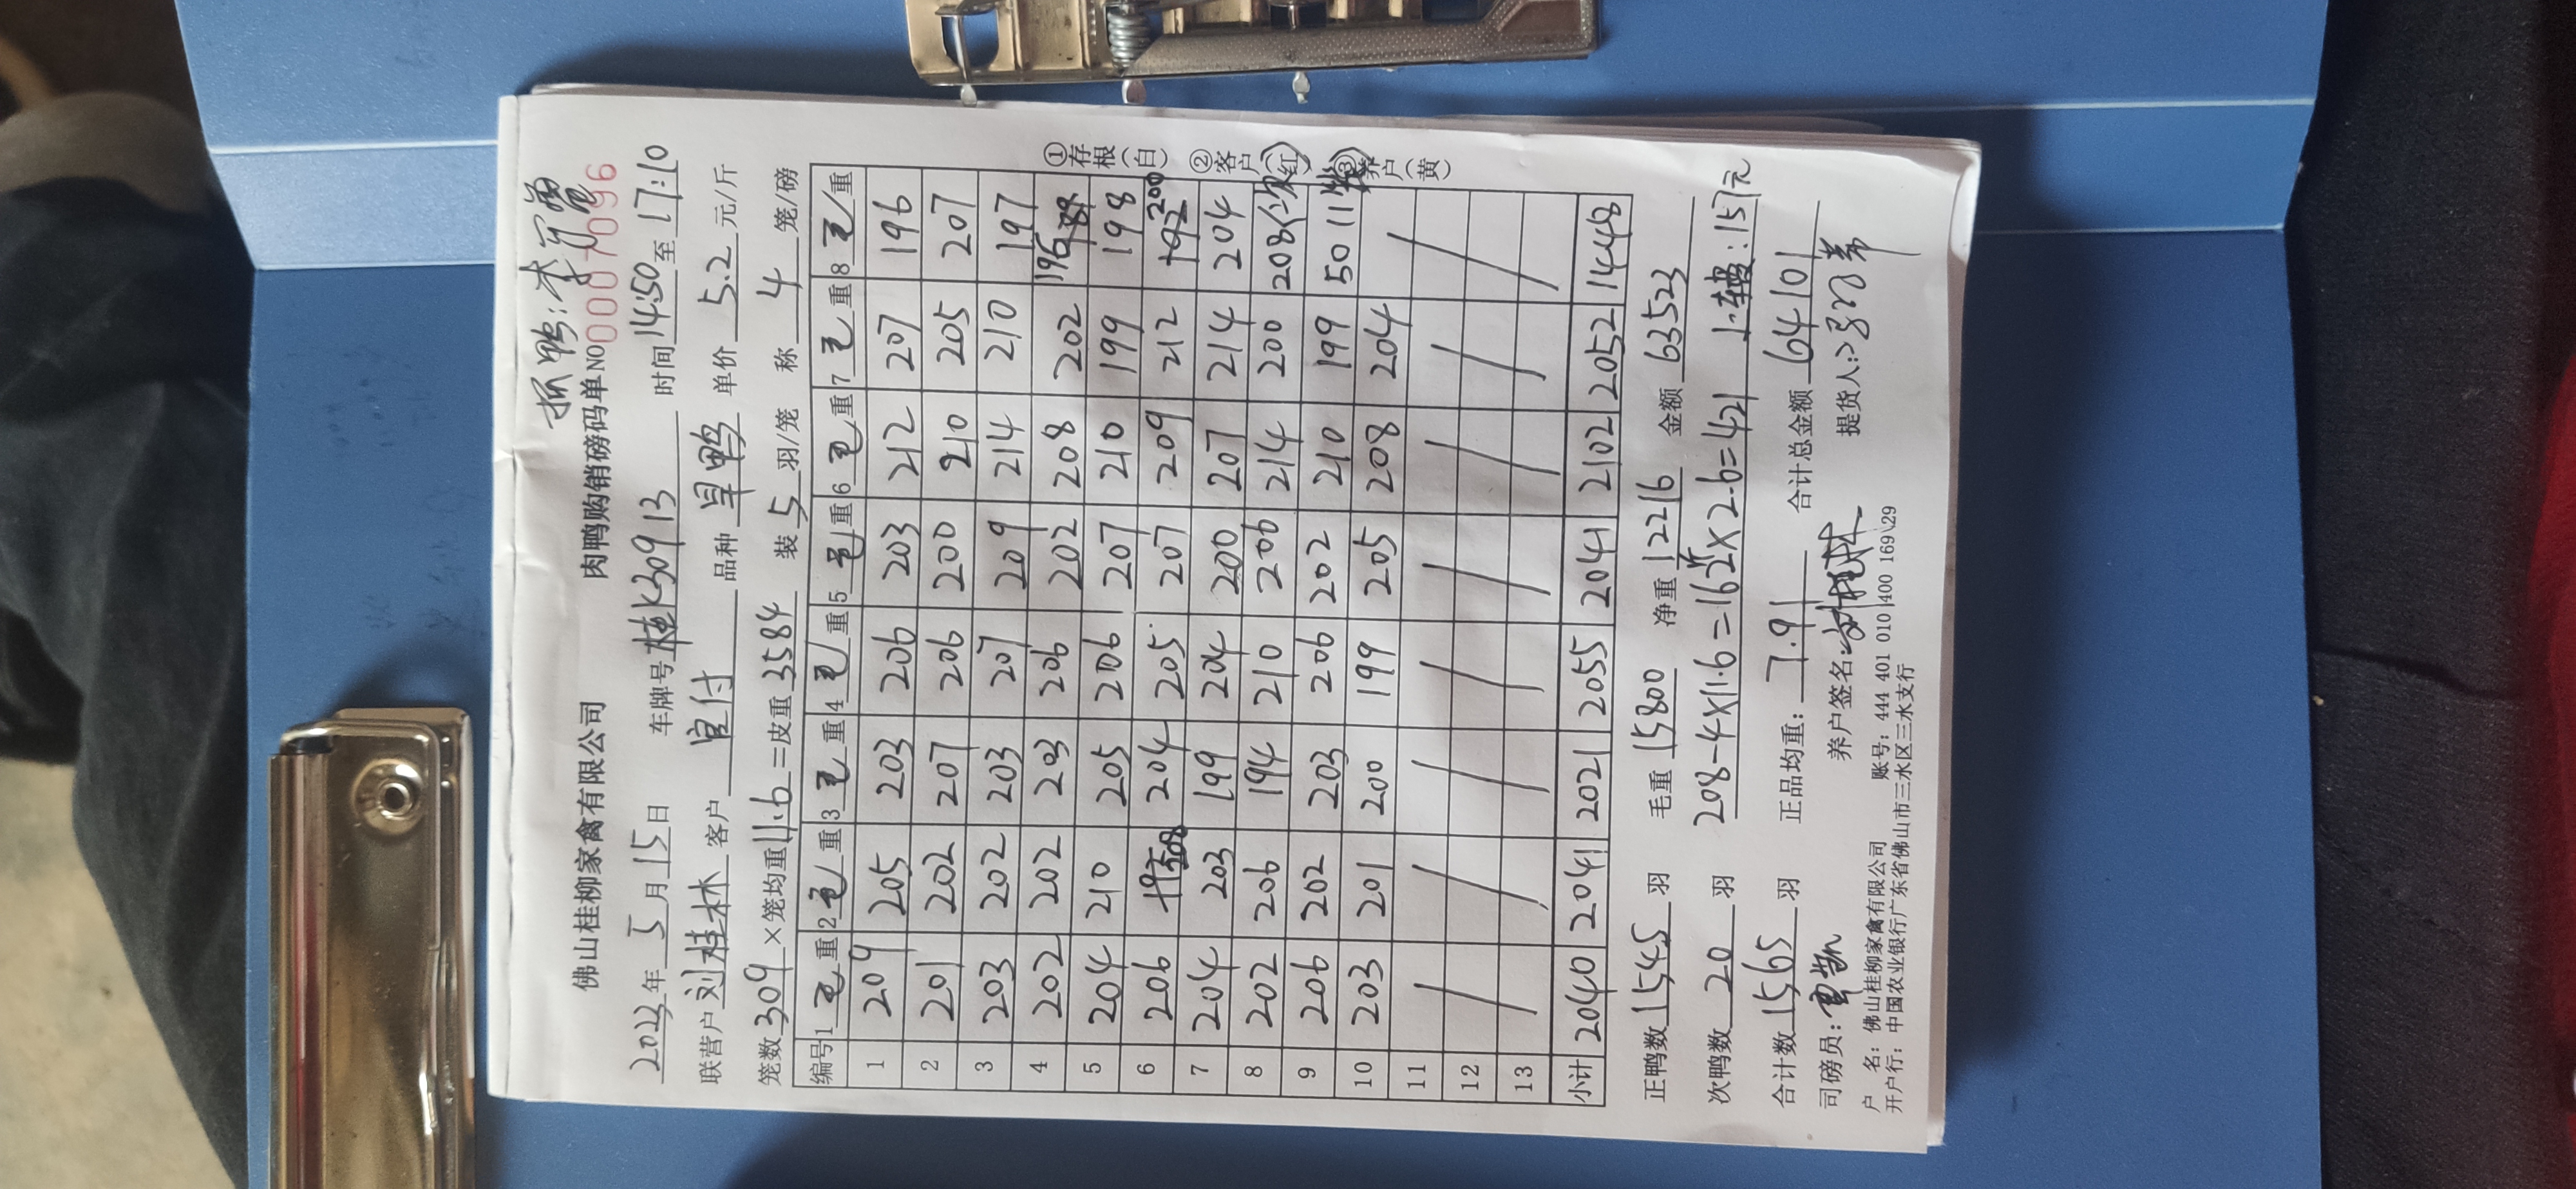 抓鸭:李
佛山桂柳家禽有限公司 肉鸭购销磅码单 NO 0007096
2023年5月15日 车牌号 桂K30913 时间 14:50 至 17:10
联营户 刘桂林 客户 官付 品种 旱鸭 单价 5.2 元/斤
笼数 309 × 笼均重 11.6 = 皮重 3584 装 5 羽/笼 称 4 笼/磅
编号 1 毛重 2 毛重 3 毛重 4 毛重 5 毛重 6 毛重 7 毛重 8 毛重
1 209 205 203 206 203 212 207 196
2 201 202 207 206 200 210 205 207
3 203 202 203 207 209 214 210 197
4 202 202 203 206 202 208 202 196
5 204 210 205 206 207 210 199 198
6 206 208 204 205 207 209 212 192 200
7 204 203 199 204 200 207 214 204
8 202 206 194 210 206 214 200 208(次)
9 206 202 203 206 202 210 199 50 11
10 203 201 200 199 205 208 204
11
12
13
小计 2040 2041 2021 2055 2041 2102 2052 1448
①存根(白) ②客户(红) ③养户(黄)
正鸭数 1545 羽 毛重 15800 净重 12216 金额 63523
次鸭数 20 羽 208-4×11.6=162斤×2.6=421 上车费:157元
合计数 1565 羽 正品均重: 7.91 合计总金额 64101
司磅员: 养户签名: 提货人:
户 名: 佛山桂柳家禽有限公司 账号: 444 401 010 400 169 29
开户行: 中国农业银行广东省佛山市三水区三水支行